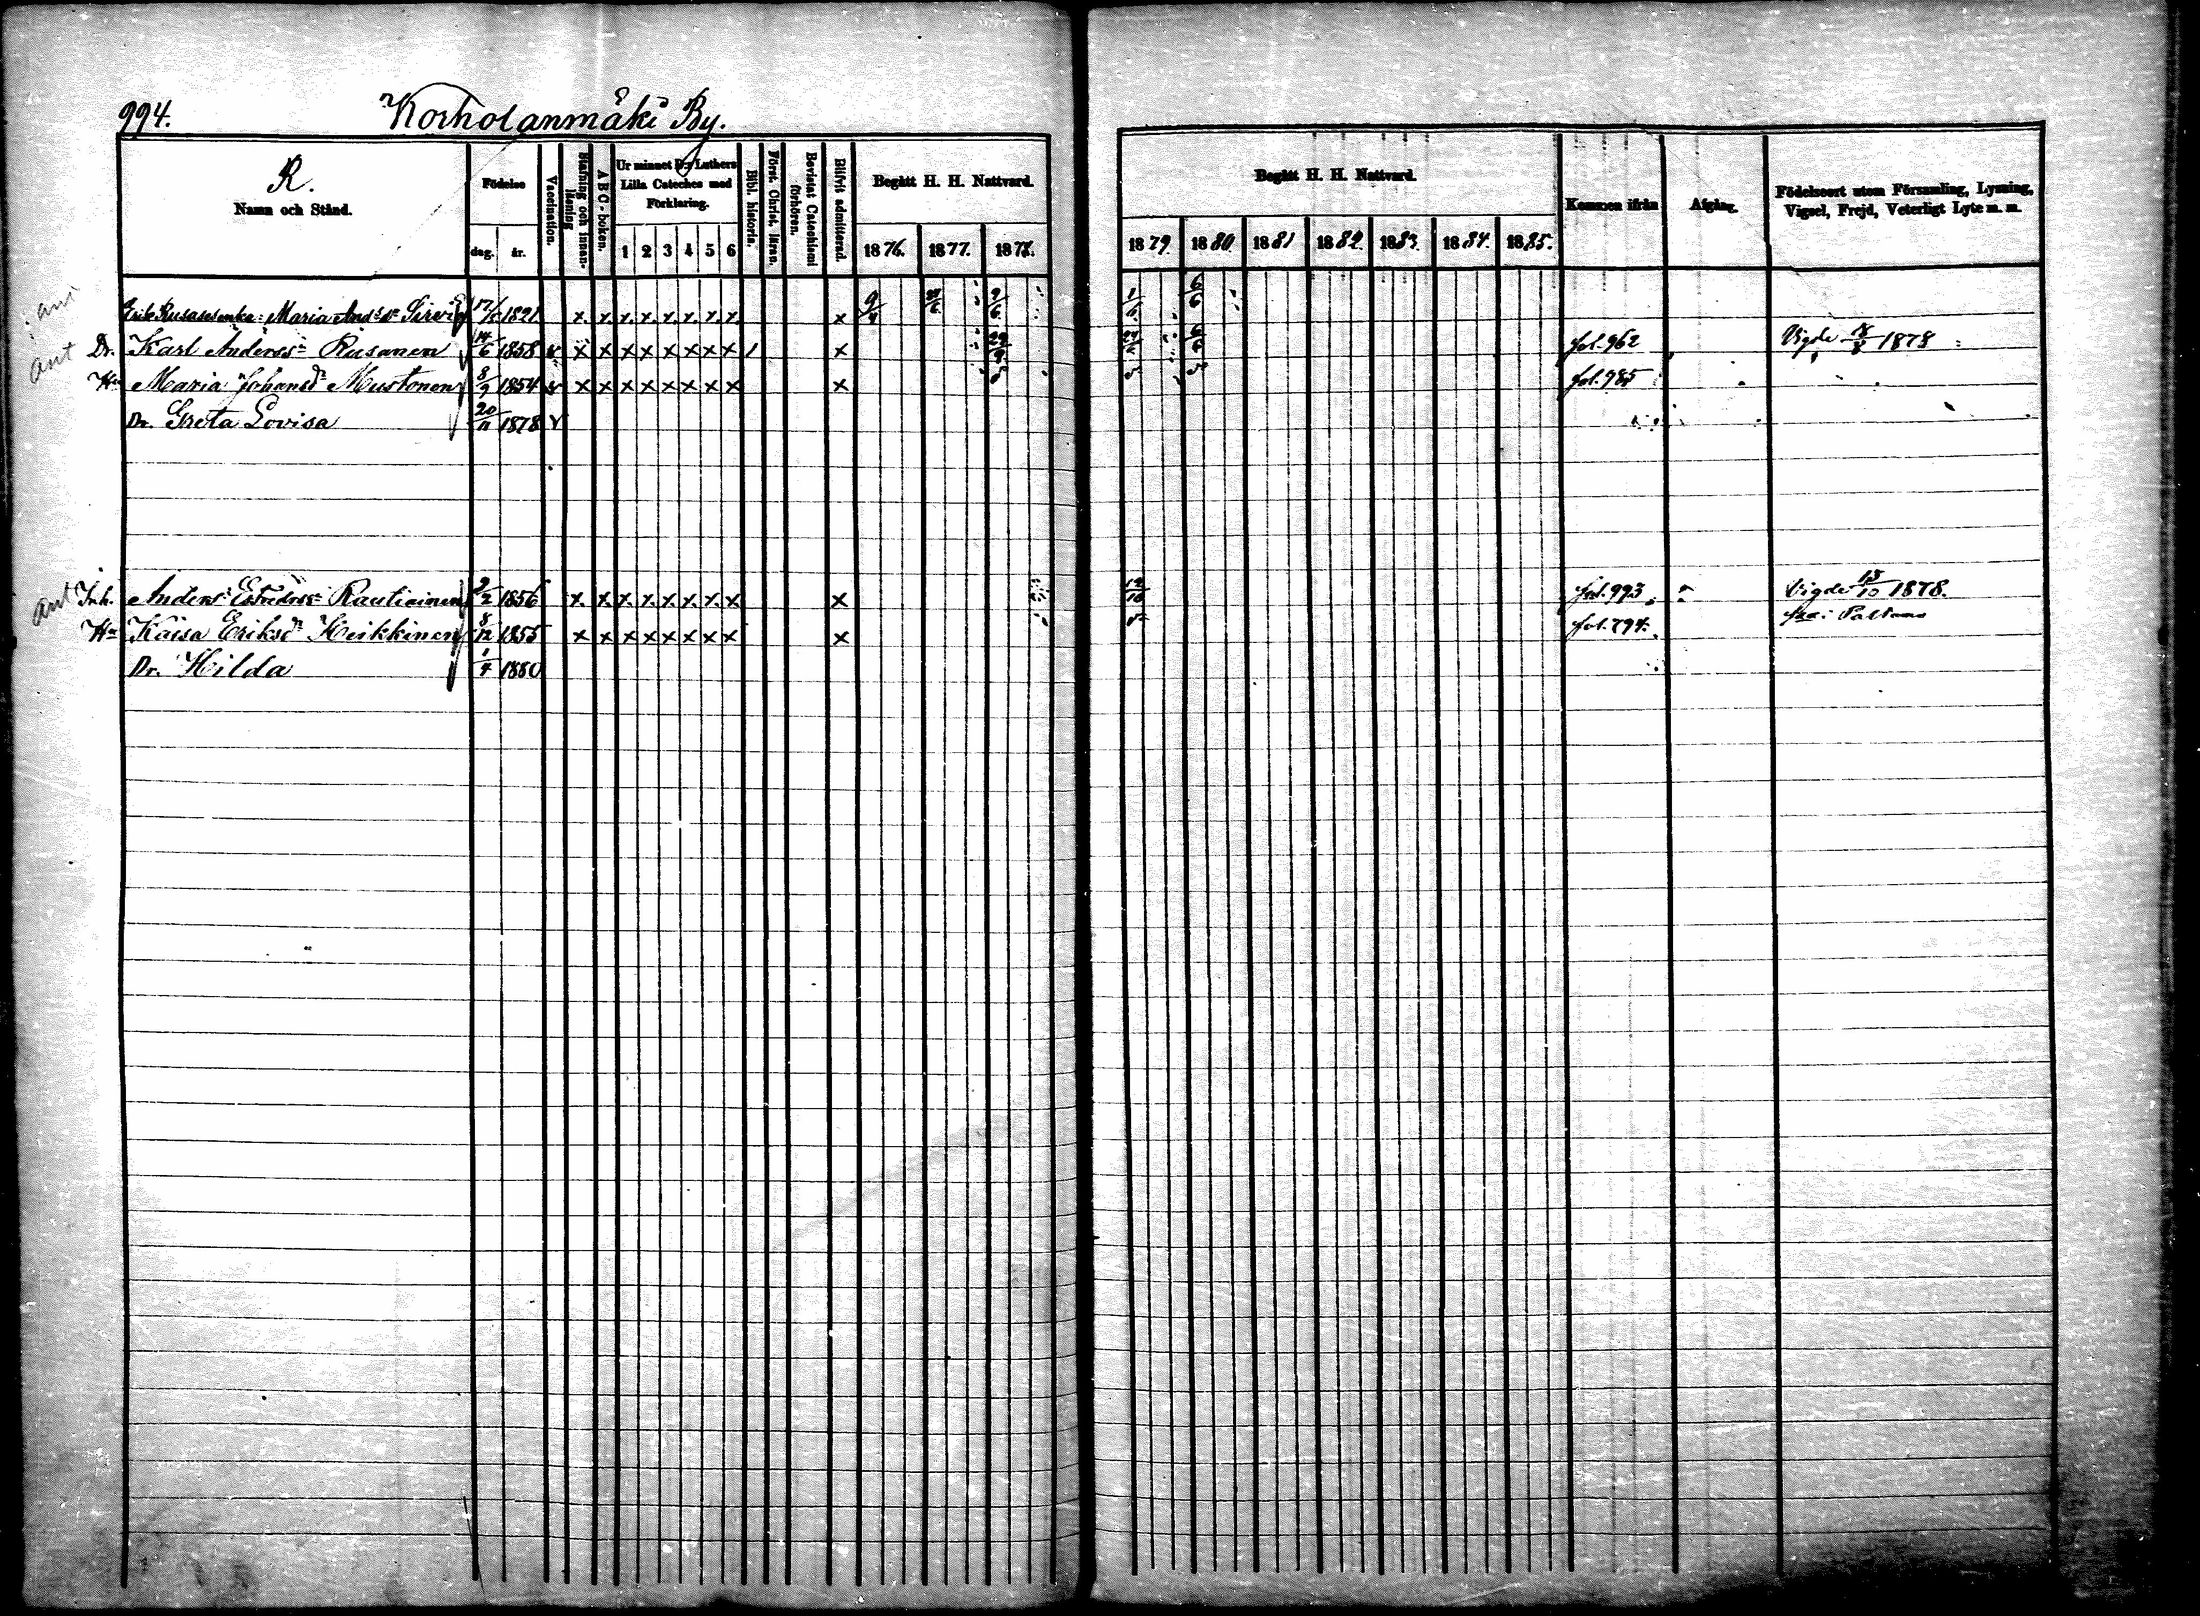 994. Korholanmäki By.
R.
Namn och Stånd.
Födelse
dag. år.
Vaccination.
Stafning och innanläsning
A B C-boken.
Ur minnet D:r Luthers Lilla Cateches med Förklaring.
1 2 3 4 5 6
Bibl. historia.
Först. Christ. läran.
Bevistat Catechismi förhören.
Blifvit admitterad.
Begått H. H. Nattvard.
1876. 1877. 1878.
Begått H. H. Nattvard.
1879. 1880. 1881 1882. 1883. 1884. 1885.
Kommen ifrån
Afgång.
Födelseort utom Församling, Lysning, Vigsel, Frejd, Veterligt Lyte m. m.
Erik Rusasenka: Maria And:sdr 1821 x x x x x x x x x 9/4 9/6 6/6
ant Dr. Karl Anderss:n Rusanen 14/6 1858 v x x x x x x x x 1 x 29/9 6/6 fol. 962 Vigde 1878
Hu Maria Johansd:r Mustonen 8/9 1854 v x x x x x x x x x fol. 985
Dr. Greta Lovisa 20/11 1878 v
ant Inh. Anders Rautiainen 2/2 1856 x x x x x x x x x 12/10 fol. 993 Vigde 13/10 1878.
Hu Kaisa Eriksd:r Heikkinen 8/12 1855 x x x x x x x x x fol. 794. Paltamo
Dr. Hilda 1/4 1880